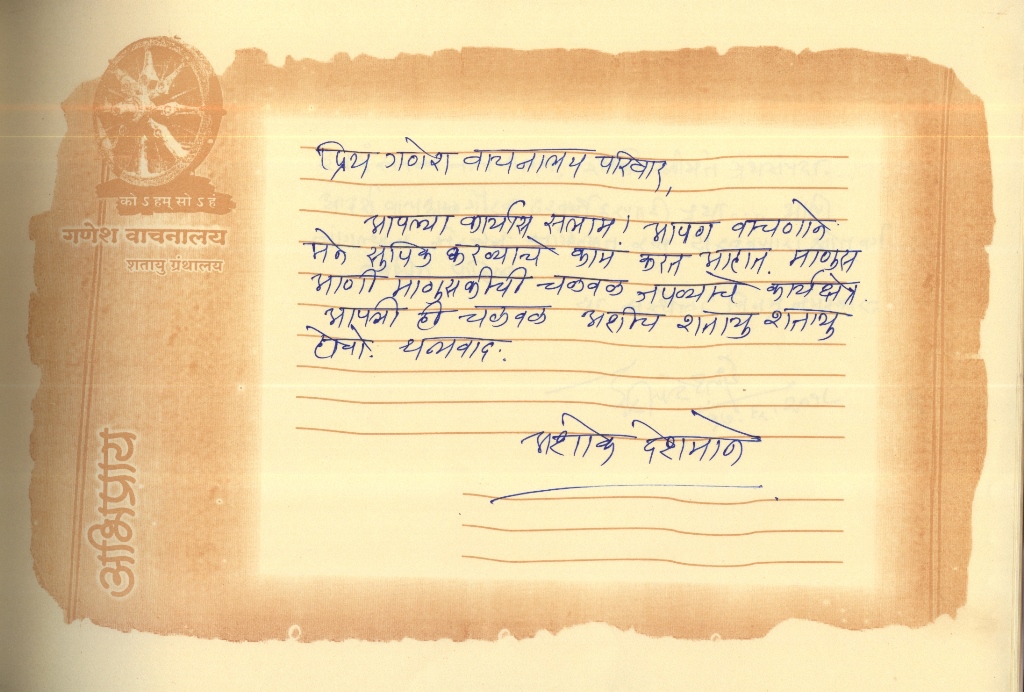 को ऽ हम् सो ऽ हं
गणेश वाचनालय
शतायु ग्रंथालय
अभिप्राय
प्रिय गणेश वाचनालय परिवार,
आपल्या कार्यास सलाम! आपण वाचणाने
मने सुपिक करण्याचे काम करत आहात. माणूस
आणी माणूसकीची चळवळ जपण्याचे कार्यक्षेत्र.
आपली ही चळवळ अशीच शतायु शतायु
होवो. धन्यवाद.
अशोक देशमाने